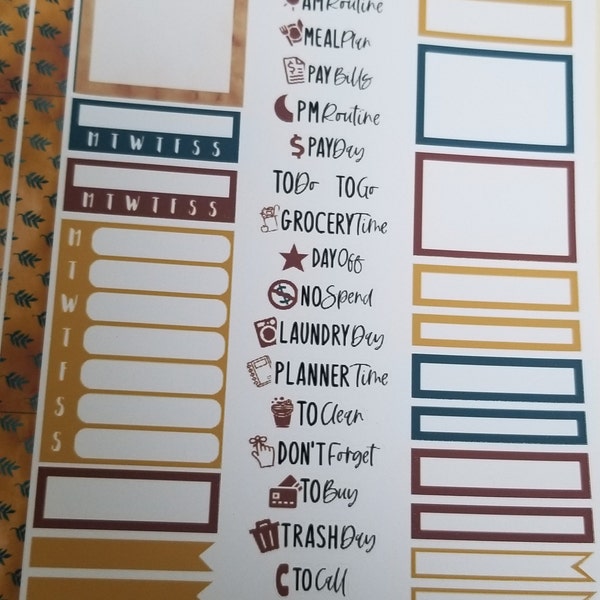 AM Routine
MEAL Plan
PAY Bills
PM Routine
$ PAY Day
TO Do TO Go
GROCERY Time
DAY Off
NO Spend
LAUNDRY Day
PLANNER Time
TO Clean
DON'T Forget
TO Buy
TRASH Day
TO Call
M T W T F S S
M T W T F S S
M
T
W
T
F
S
S